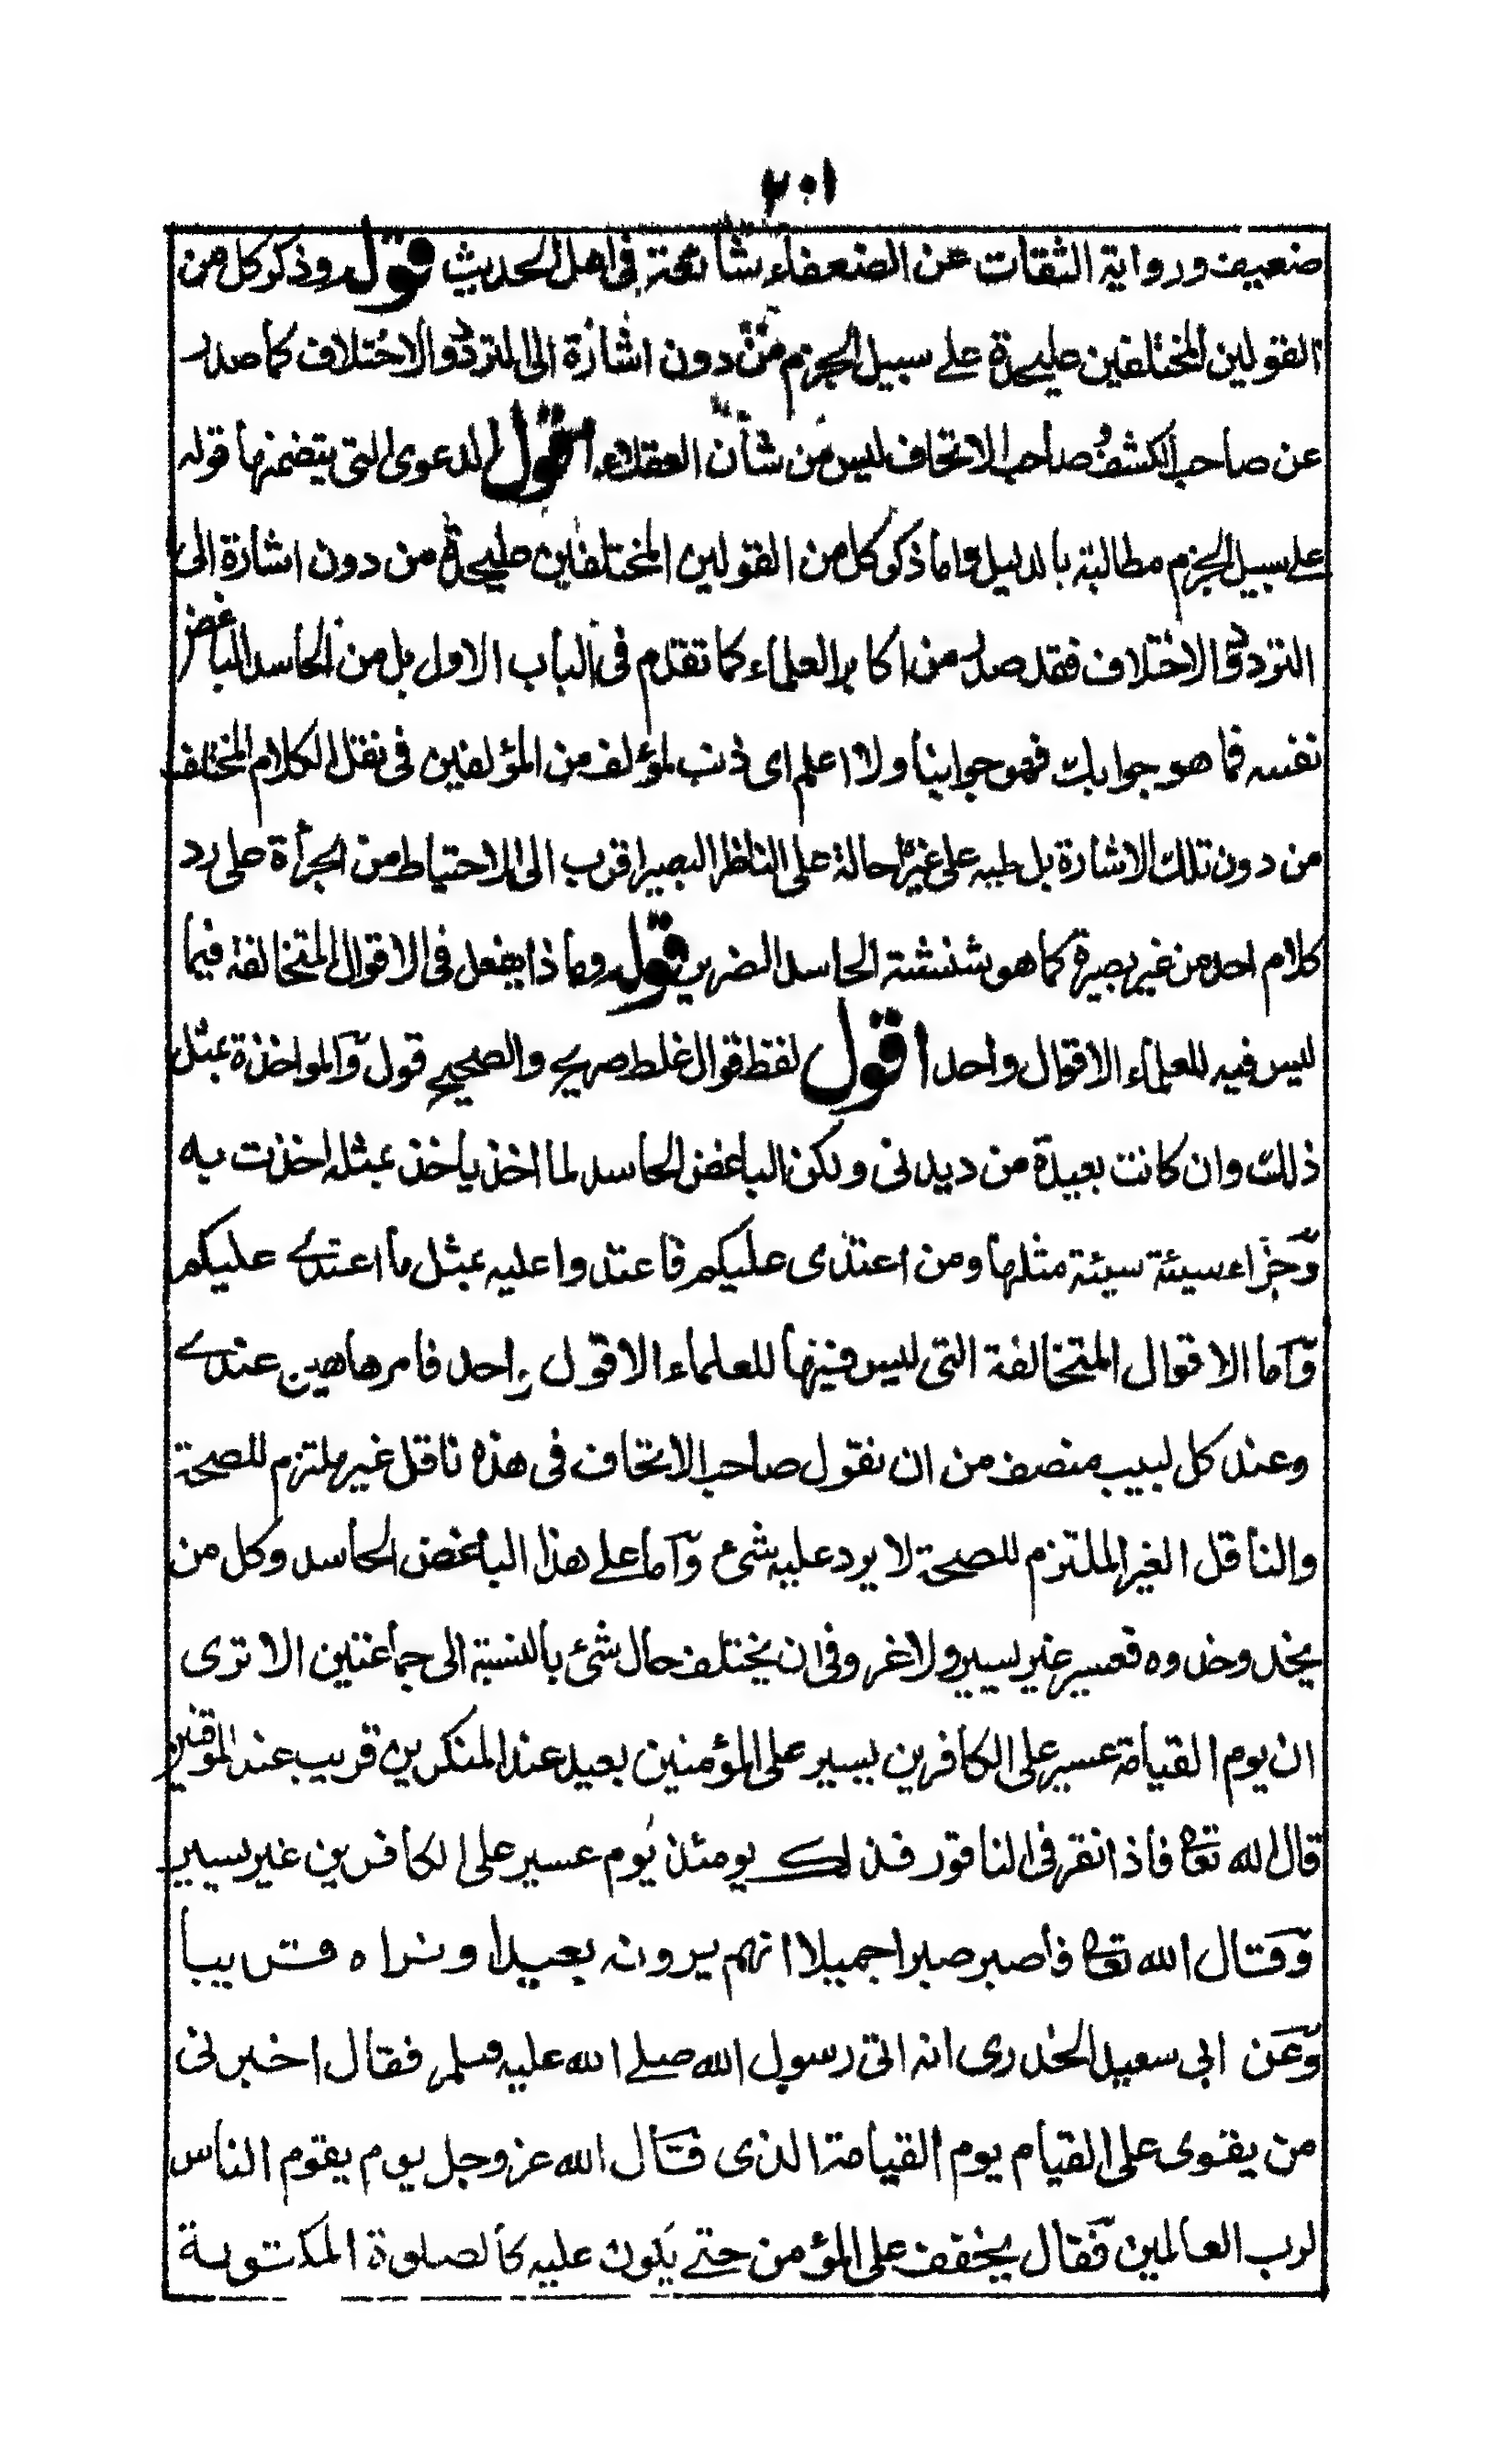 ٢٠١
ضعيف ورواية الثقات عن الضعفاء شائعة في اهل الحديث قوله وذكر كل من
القولين المختلفين عليحدة على سبيل الجزم من دون اشارة الى التردد والاختلاف كما صدر
عن صاحب الكشف وصاحب الاتحاف ليس من شأن العقلاء اقول الدعوى التي يتضمنها قوله
على سبيل الجزم مطالبة بالدليل واما ذكر كل من القولين المختلفين عليحدة من دون اشارة الى
التردد والاختلاف فقد صدر من اكابر العلماء كما تقدم في الباب الاول بل من الحاسد الباغض
نفسه فما هو جوابك فهو جوابنا ولا اعلم اي ذنب لمؤلف من المؤلفين في نقل الكلام المختلف
من دون تلك الاشارة بل طيه على غيره احالة على الناظر البصير اقرب الى الاحتياط من الجرأة على رد
كلام احد من غير بصيرة كما هو شنشنة الحاسد الضرير قوله وماذا يفعل في الاقوال المتخالفة فيما
ليس فيه للعلماء الا قوال واحد اقول لفظ قوال غلط صريح والصحيح قول والمواخذة بمثل
ذلك وان كانت بعيدة من ديدني ولكن الباغض الحاسد لما اخذ ياخذ بمثله اخذت به
وجزاء سيئة سيئة مثلها ومن اعتدى عليكم فاعتدوا عليه بمثل ما اعتدے عليكم
واما الاقوال المتخالفة التي ليس فيها للعلماء الا قول واحد فامرها هين عندے
وعند كل لبيب منصف من ان نقول صاحب الاتحاف في هذه ناقل غير ملتزم للصحة
والناقل الغير الملتزم للصحة لا يرد عليه شئ واما على هذا الباغض الحاسد وكل من
يحذو حذوه فعسير غير يسير ولا غرو في ان يختلف حال شئ بالنسبة الى جماعتين الا ترى
ان يوم القيامة عسير على الكافرين يسير على المؤمنين بعيد عند المنكرين قريب عند الموقنين
قال الله تعالى فاذا نقر في الناقور فذلك يومئذ يوم عسير على الكافرين غير يسير
وقال الله تعالى فاصبر صبرا جميلا انهم يرونه بعيدا ونراه قريبا
وعن ابي سعيد الخدرى انه اتى رسول الله صلے الله عليه وسلم فقال اخبرني
من يقوى على القيام يوم القيامة الذى قال الله عز وجل يوم يقوم الناس
لرب العالمين فقال يخفف على المؤمن حتے يكون عليه كالصلوة المكتوبة